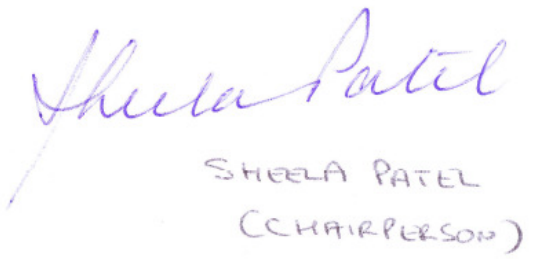 Sheela Patel
SHEELA PATEL
(CHAIRPERSON)